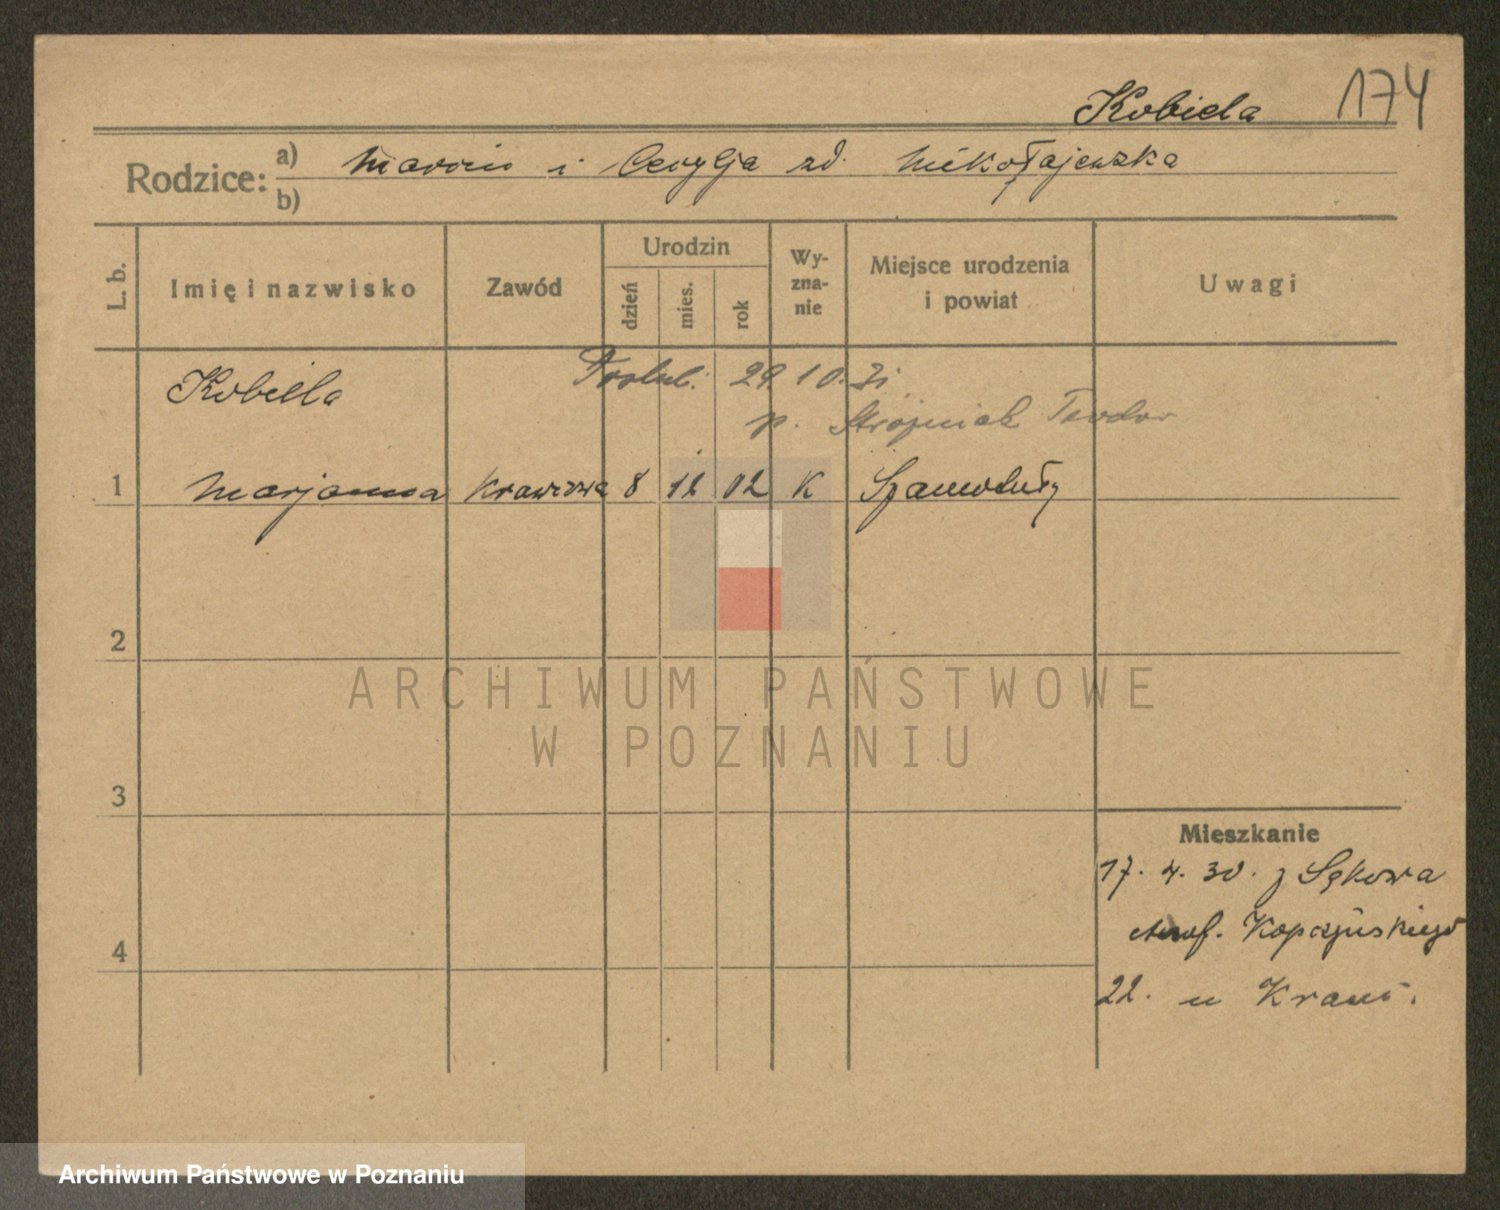 174
Kobiela
Rodzice: a) Marcin i Cecylja zd. Mikołajewska
b)
L. b. Imię i nazwisko Zawód Urodzin dzień mies. rok Wy-zna-nie Miejsce urodzenia i powiat Uwagi
Kobiella 29. 10. 31
p. Strójniak Teodor
1 Marjanna Krawcowa 8 12 02 K Szamotuły
2
ARCHIWUM PAŃSTWOWE
W POZNANIU
3
Mieszkanie
17. 4. 30. z Sękowa
Kopczyńskiego
4
22. u
Archiwum Państwowe w Poznaniu